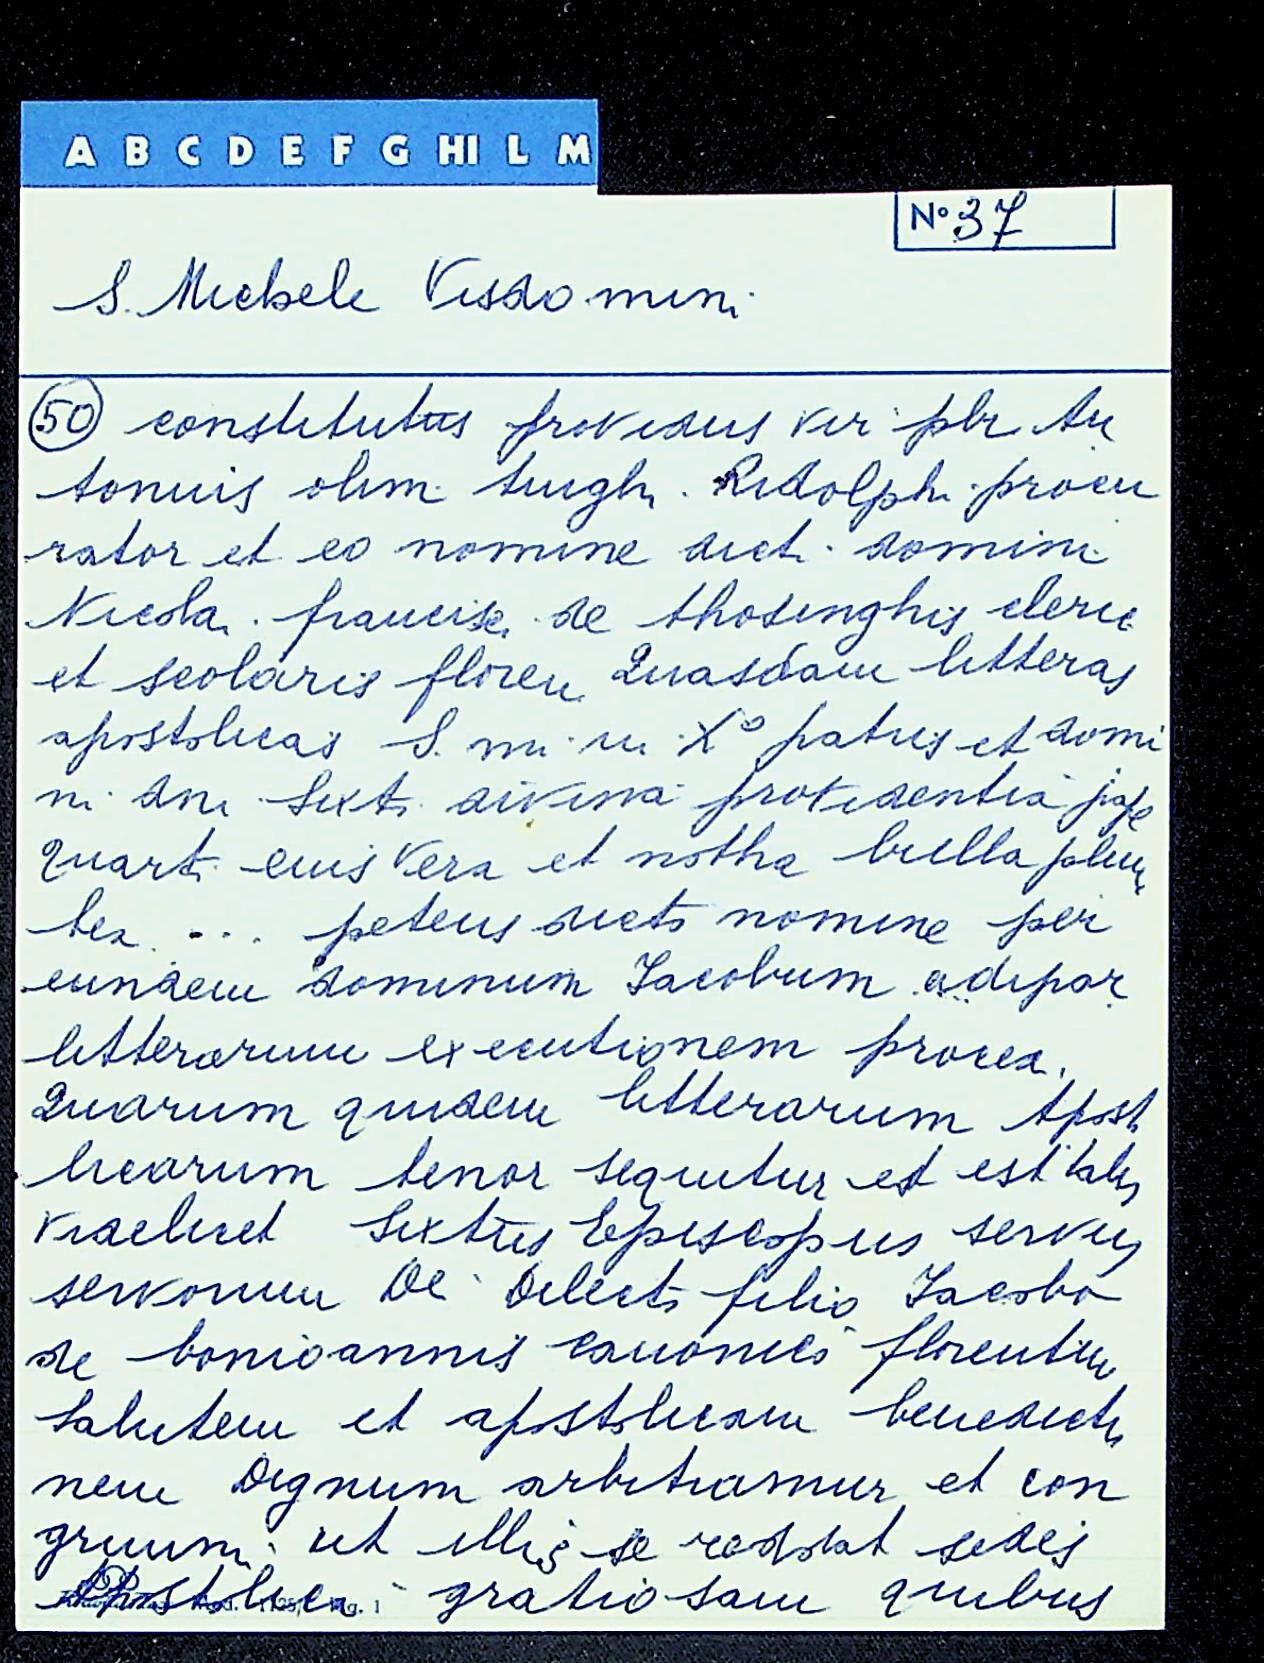 A B C D E F G HI L M
No 37
S. Michele Visdomini
50 constitutus providus vir pbr An
tonius olim Luighi Ridolphi procu
rator et eo nomine dicti domini
Nicolai francisci de thosinghis cleric
et scolaris floren Quasdam litteras
apostolicas S. mi in Xo patris et domi
ni dni Sixti divina providentia pape
quarti eius vera et notha bulla plum
bea ... petens dicto nomine per
eundem dominum Jacobum ad ipar
litterarum executionem proced.
Quarum quidem litterarum Aposto
licarum tenor sequitur et est talis
videlicet Sixtus Episcopus servus
servorum Dei Dilecto filio Jacobo
de bonioannis canonico florentin
Salutem et apostolicam benedictio
nem Dignum arbitramur et con
gruum ut illis se reddat sedes
Apostolica gratiosam quibus